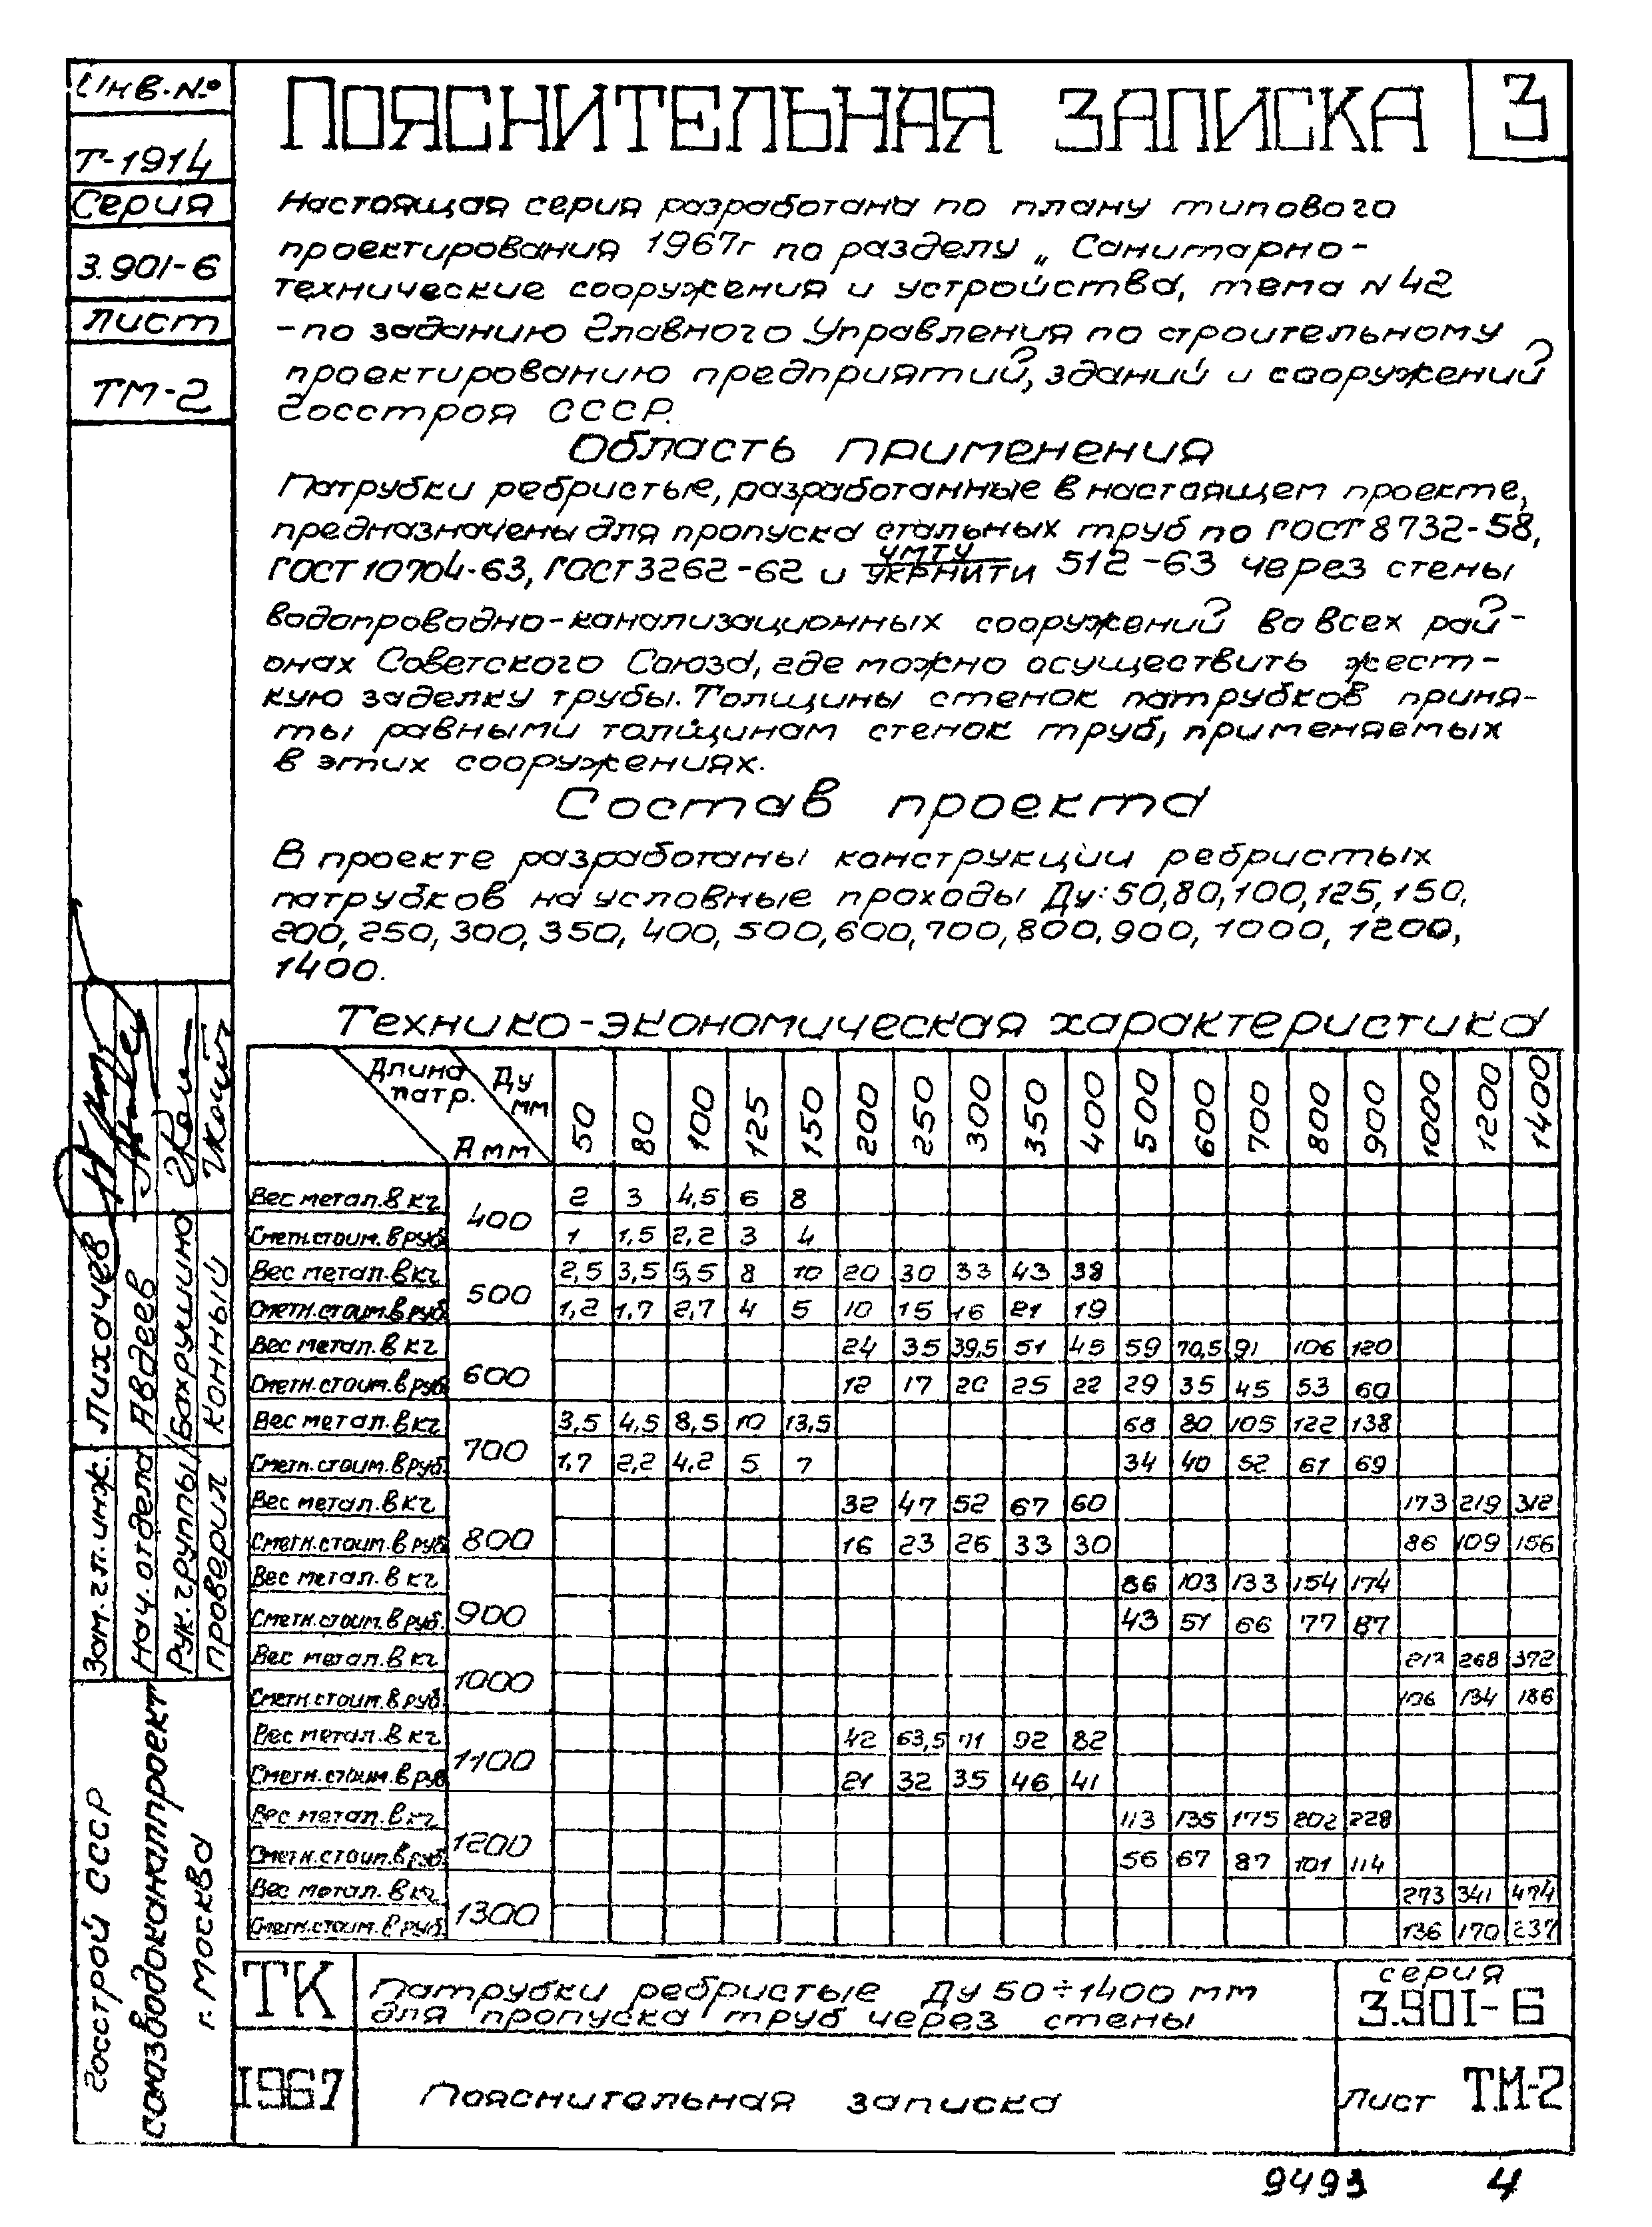 Инв.№
Т-1914
Серия
3.901-6
лист
ТМ-2
ПОЯСНИТЕЛЬНАЯ ЗАПИСКА 3
Настоящая серия разработана по плану типового
проектирования 1967г по разделу „ Санитарно-
технические сооружения и устройства, тема N 42
-по заданию Главного Управления по строительному
проектированию предприятий, зданий и сооружений
Госстроя СССР.
Область применения
Патрубки ребристые, разработанные в настоящем проекте,
предназначены для пропуска стальных труб по ГОСТ 8732-58,
ГОСТ 10704-63, ГОСТ 3262-62 и ЧМТУ/УКРНИТИ 512-63 через стены
водопроводно-канализационных сооружений во всех рай-
онах Советского Союза, где можно осуществить жест-
кую заделку трубы. Толщины стенок патрубков приня-
ты равными толщинам стенок труб, применяемых
в этих сооружениях.
Состав проекта
В проекте разработаны конструкции ребристых
патрубков на условные проходы Ду: 50, 80, 100, 125, 150,
200, 250, 300, 350, 400, 500, 600, 700, 800, 900, 1000, 1200,
1400.
Технико-экономическая характеристика
Длина патр. А мм Ду мм 50 80 100 125 150 200 250 300 350 400 500 600 700 800 900 1000 1200 1400
400
Вес метал. в кг 2 3 4,5 6 8
Сметн. стоим. в руб 1 1,5 2,2 3 4
500
Вес метал. в кг 2,5 3,5 5,5 8 10 20 30 33 43 38
Сметн. стоим. в руб 1,2 1,7 2,7 4 5 10 15 16 21 19
600
Вес метал. в кг 24 35 39,5 51 45 59 70,5 91 106 120
Сметн. стоим. в руб 12 17 20 25 22 29 35 45 53 60
700
Вес метал. в кг 3,5 4,5 8,5 10 13,5 68 80 105 122 138
Сметн. стоим. в руб. 1,7 2,2 4,2 5 7 34 40 52 61 69
800
Вес метал. в кг 32 47 52 67 60 173 219 312
Сметн. стоим. в руб 16 23 26 33 30 86 109 156
900
Вес метал. в кг 86 103 133 154 174
Сметн. стоим. в руб. 43 51 66 77 87
1000
Вес метал. в кг 268 372
Сметн. стоим. в руб 106 134 186
1100
Вес метал. в кг 42 63,5 71 92 82
Сметн. стоим. в руб 21 32 35 46 41
1200
Вес метал. в кг 113 135 175 202 228
Сметн. стоим. в руб. 56 67 87 101 114
1300
Вес метал. в кг 273 341 474
Сметн. стоим. в руб. 136 170 237
Зам. гл. инж. Лихачев
Нач. отдела Авдеев
Рук. группы Бахрушина
проверил Конный
Госстрой СССР
союзводоканалпроект
г. Москва
ТК
Патрубки ребристые Ду 50÷1400 мм
для пропуска труб через стены
серия
3.901-6
1967
Пояснительная записка
лист ТМ-2
9493 4